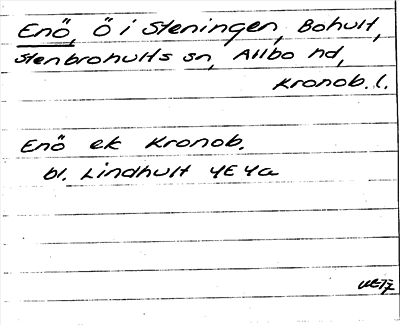 Enö, Ö i Steningen, Bohult,
Stenbrohults sn, Allbo hd,
Kronob. l.
Enö ek Kronob.
bl. Lindhult 4E 4a